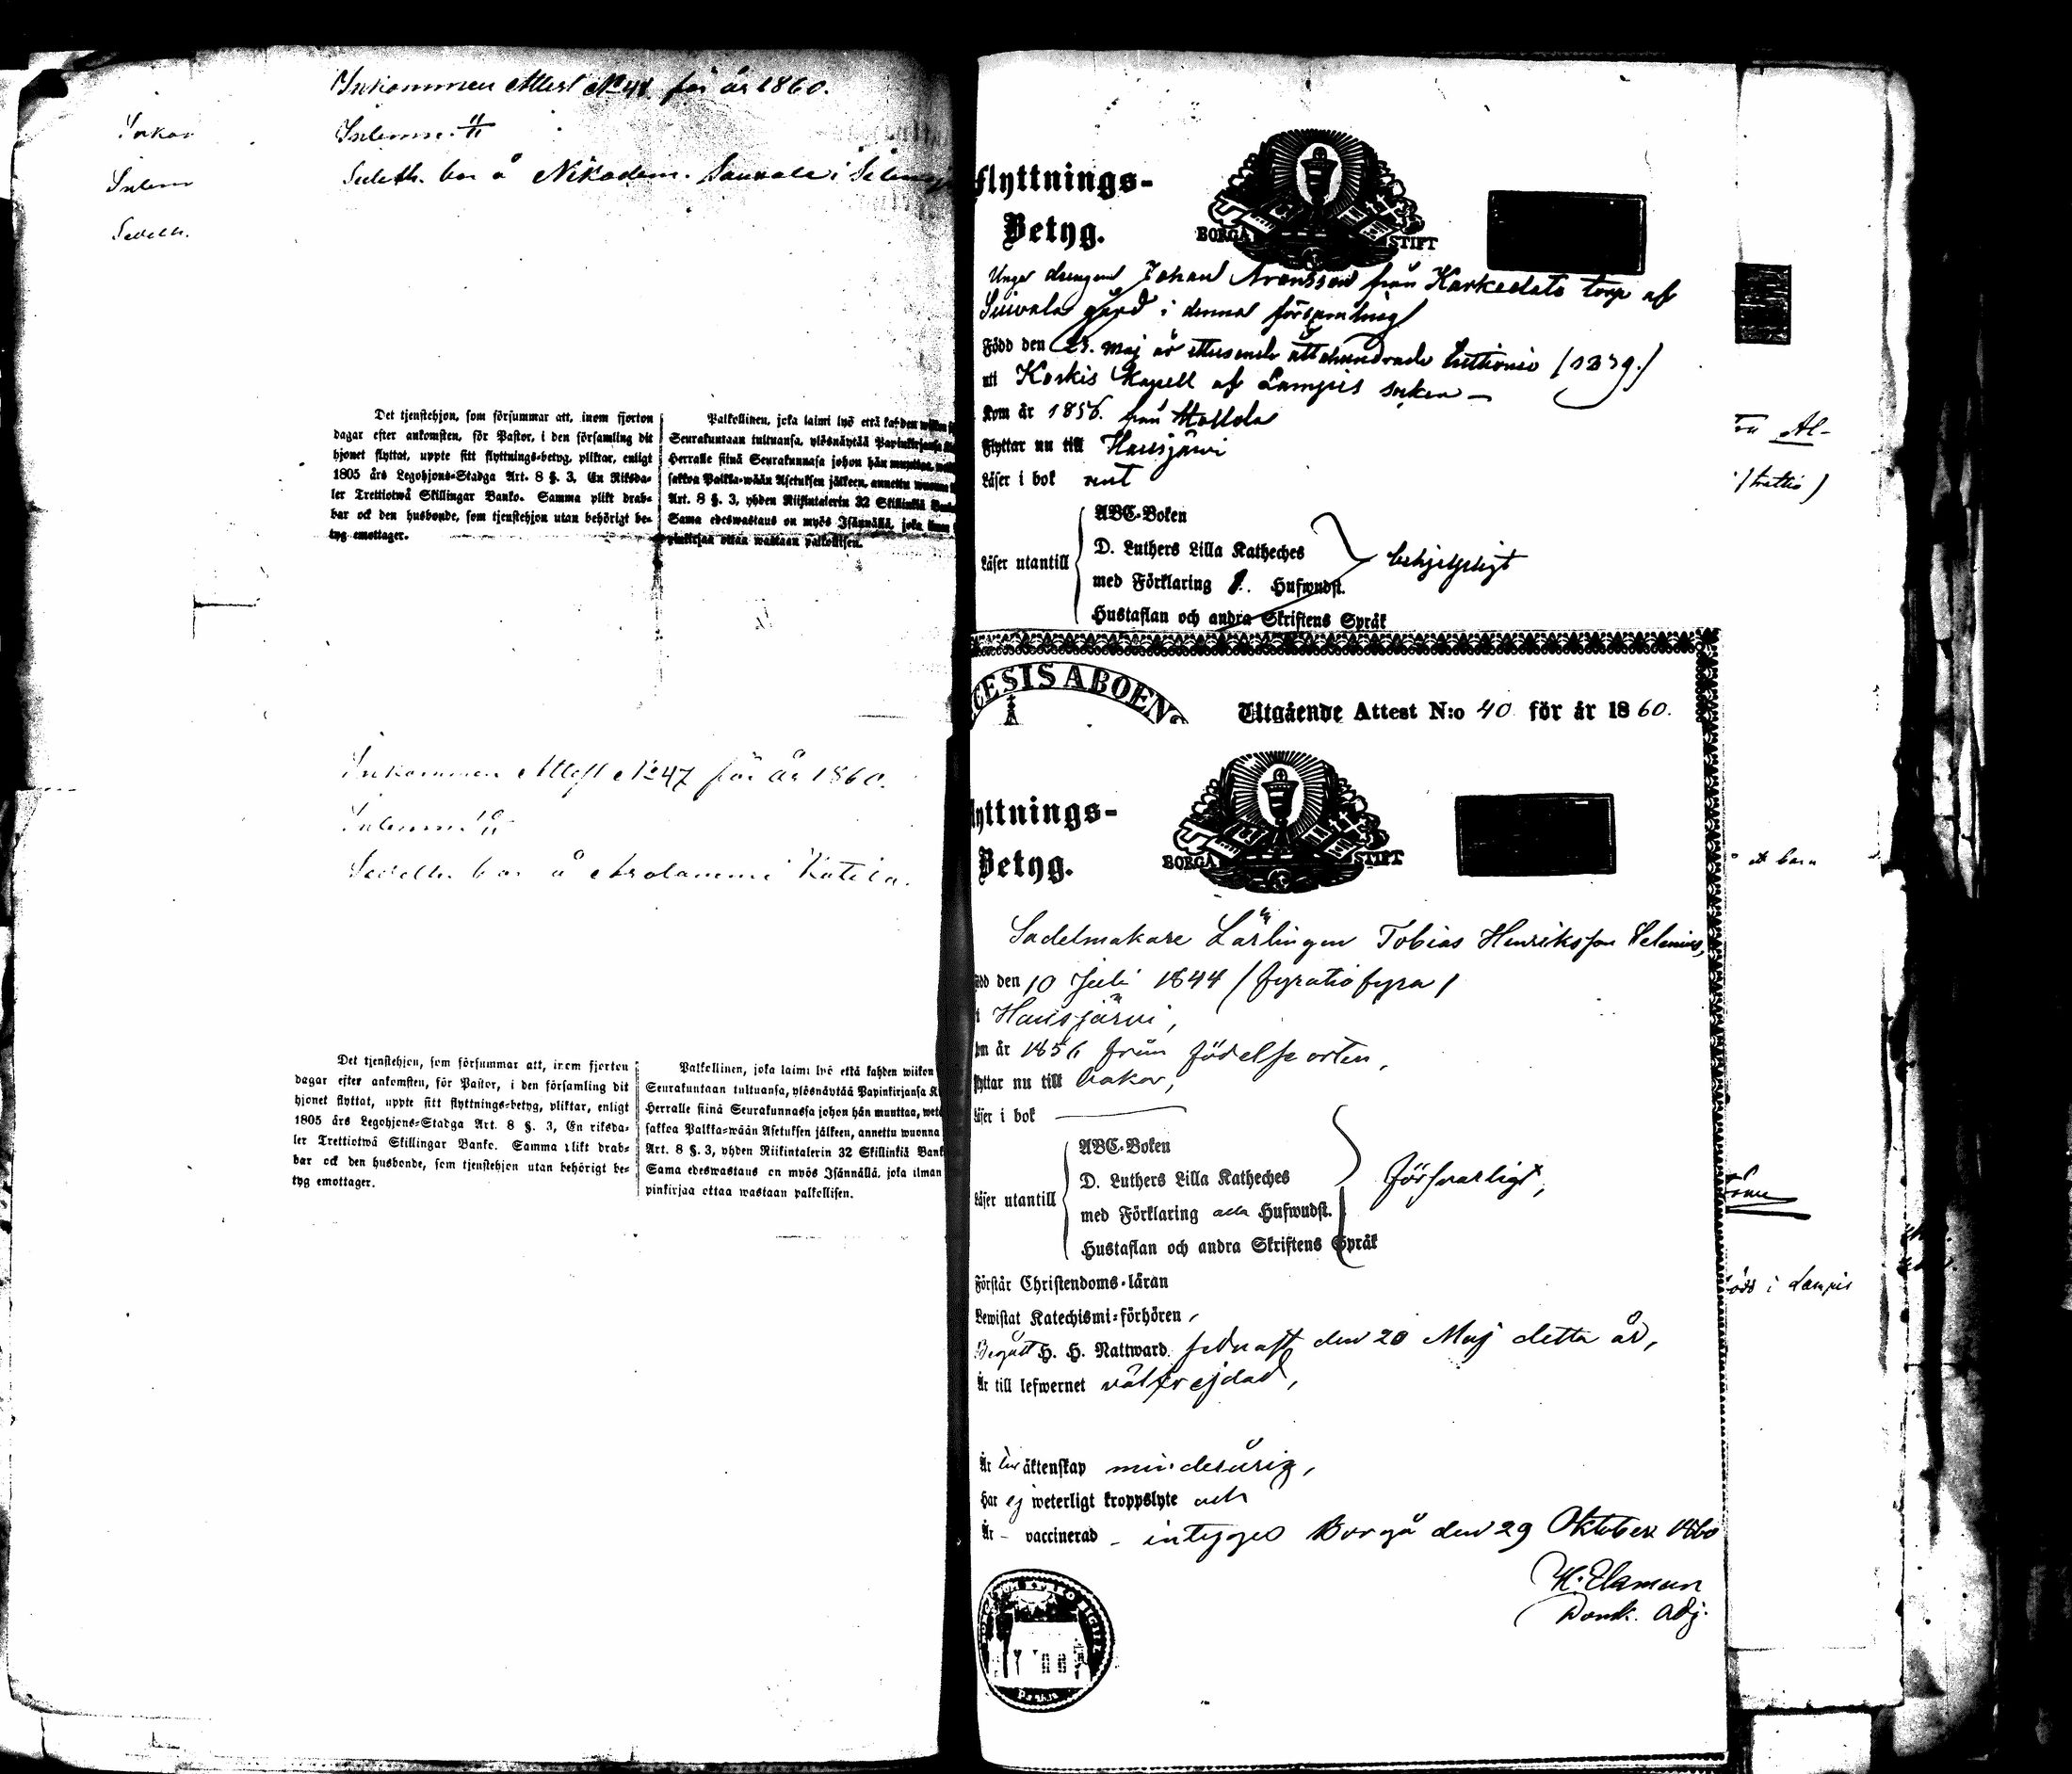 Inkommen Attest No 48 för år 1860.
Inkom
Inlemn.
Sedeln.
Sedeln bor å Nikodem. Saunala i
Det tjenstehjon, som försummar att, inom fjorton
dagar efter ankomsten, för Pastor, i den församling dit
hjonet flyttat, uppte sitt flyttnings-betyg, pliktar, enligt
1805 års Legohjons-Stadga Art. 8 §. 3, En Riksda-
ler Trettiotwå Skillingar Banko. Samma plikt drab-
bar ock den husbonde, som tjenstehjon utan behörigt be-
tyg emottager.
Palkollinen, joka laimi lyö että kahden wiikon
Seurakuntaan tultuansa, ylösnäytää Papinkirjansa
Herralle siinä Seurakunnasa johon hän muuttaa,
sakkoa Palkka-wään Asetuksen jälkeen, annettu wuonna
Art. 8 §. 3, yhden Riikintalerin 32 Skillinkiä
Sama edeswastaus on myös Isännällä, joka ilman
pinkirjaa ottaa wastaan palkollisen.
Inkommen Attest No 47 för år 1860.
Inlemn.
Sedeln bor å Arolammi Katila.
Det tjenstehjon, som försummar att, inom fjorton
dagar efter ankomsten, för Pastor, i den församling dit
hjonet flyttat, uppte sitt flyttnings-betyg, pliktar, enligt
1805 års Legohjons-Stadga Art. 8 §. 3, En riksda-
ler Trettiotwå Skillingar Banko. Samma plikt drab-
bar ock den husbonde, som tjenstehjon utan behörigt be-
tyg emottager.
Palkollinen, joka laimi lyö että kahden wiikon
Seurakuntaan tultuansa, ylösnäytää Papinkirjansa K
Herralle siinä Seurakunnassa johon hän muuttaa, wetä
sakkoa Palkka-wään Asetuksen jälkeen, annettu wuonna
Art. 8 §. 3, yhden Riikintalerin 32 Skillinkiä Bank
Sama edeswastaus on myös Isännällä, joka ilman
pinkirjaa ottaa wastaan palkollisen.
Flyttnings-
Betyg.
BORGÅ STIFT
Unge drengen Johan Aronsson från Karkeslato torp af
gård i denna församling
Född den 23. Maj år ettusende åttahundrade trettionio (1839.)
uti Koskis Kapell af Lampis socken —
Kom år 1856. från Hollola
Flyttar nu till Hausjärvi
Läser i bok rent
Läser utantill
ABC-Boken
D. Luthers Lilla Katheches
med Förklaring 1. Hufwudst.
Hustaflan och andra Skriftens Språk
behjelpligt
CESIS ABOEN
Utgående Attest N:o 40 för år 1860.
lyttnings-
Betyg.
BORGÅ STIFT
Sadelmakare Lärlingen Tobias Henriksson Helenius,
ödd den 10 Juli 1844 / fyratiofyra /
i Hausjärvi,
om år 1856 från födelseorten,
lyttar nu till Åakar,
Läser i bok
Läser utantill
ABC-Boken
D. Luthers Lilla Katheches
med Förklaring alla Hufwudst.
Hustaflan och andra Skriftens Språk
försvarligt,
Förstår Christendoms-läran
Bewistat Katechismi-förhören,
Begått H. H. Nattward sednast den 20 Maj detta år,
Är till lefwernet välfrejdad,
Är till äktenskap minderårig,
Har ej weterligt kroppslyte och
Är – vaccinerad – intygas Borgå den 29 Oktober 1860
Domk. Adj.
Al-
/ trettio)
et barn
i Lampis